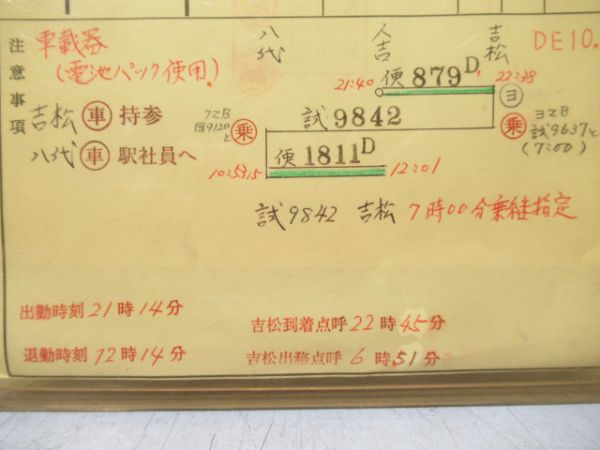 注意事項
車載器
(電池パック使用)
八代
人吉
吉松
DE10.
21:40
便 879D
22:38
ヨ
吉松 車 持参
7ZB
回9120
と
乗
試 9842
乗
3ZB
試9637と
(7:00)
八代 車 駅社員へ
便 1811D
12:01
試9842 吉松 7時00分乗継指定
出勤時刻 21時14分
吉松到着点呼 22時45分
退勤時刻 12時14分
吉松出務点呼 6時51分